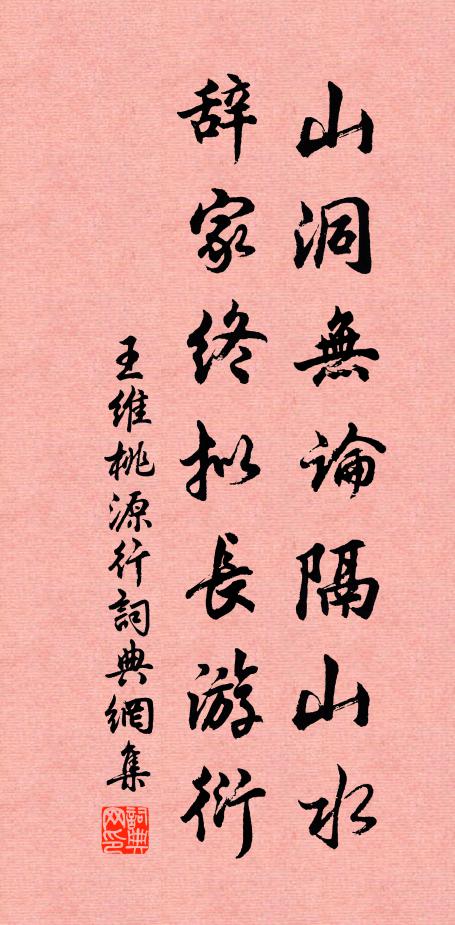 山洞無論隔山水
辞家终拟長游衍
王维桃源行詞典網集
詞典网印